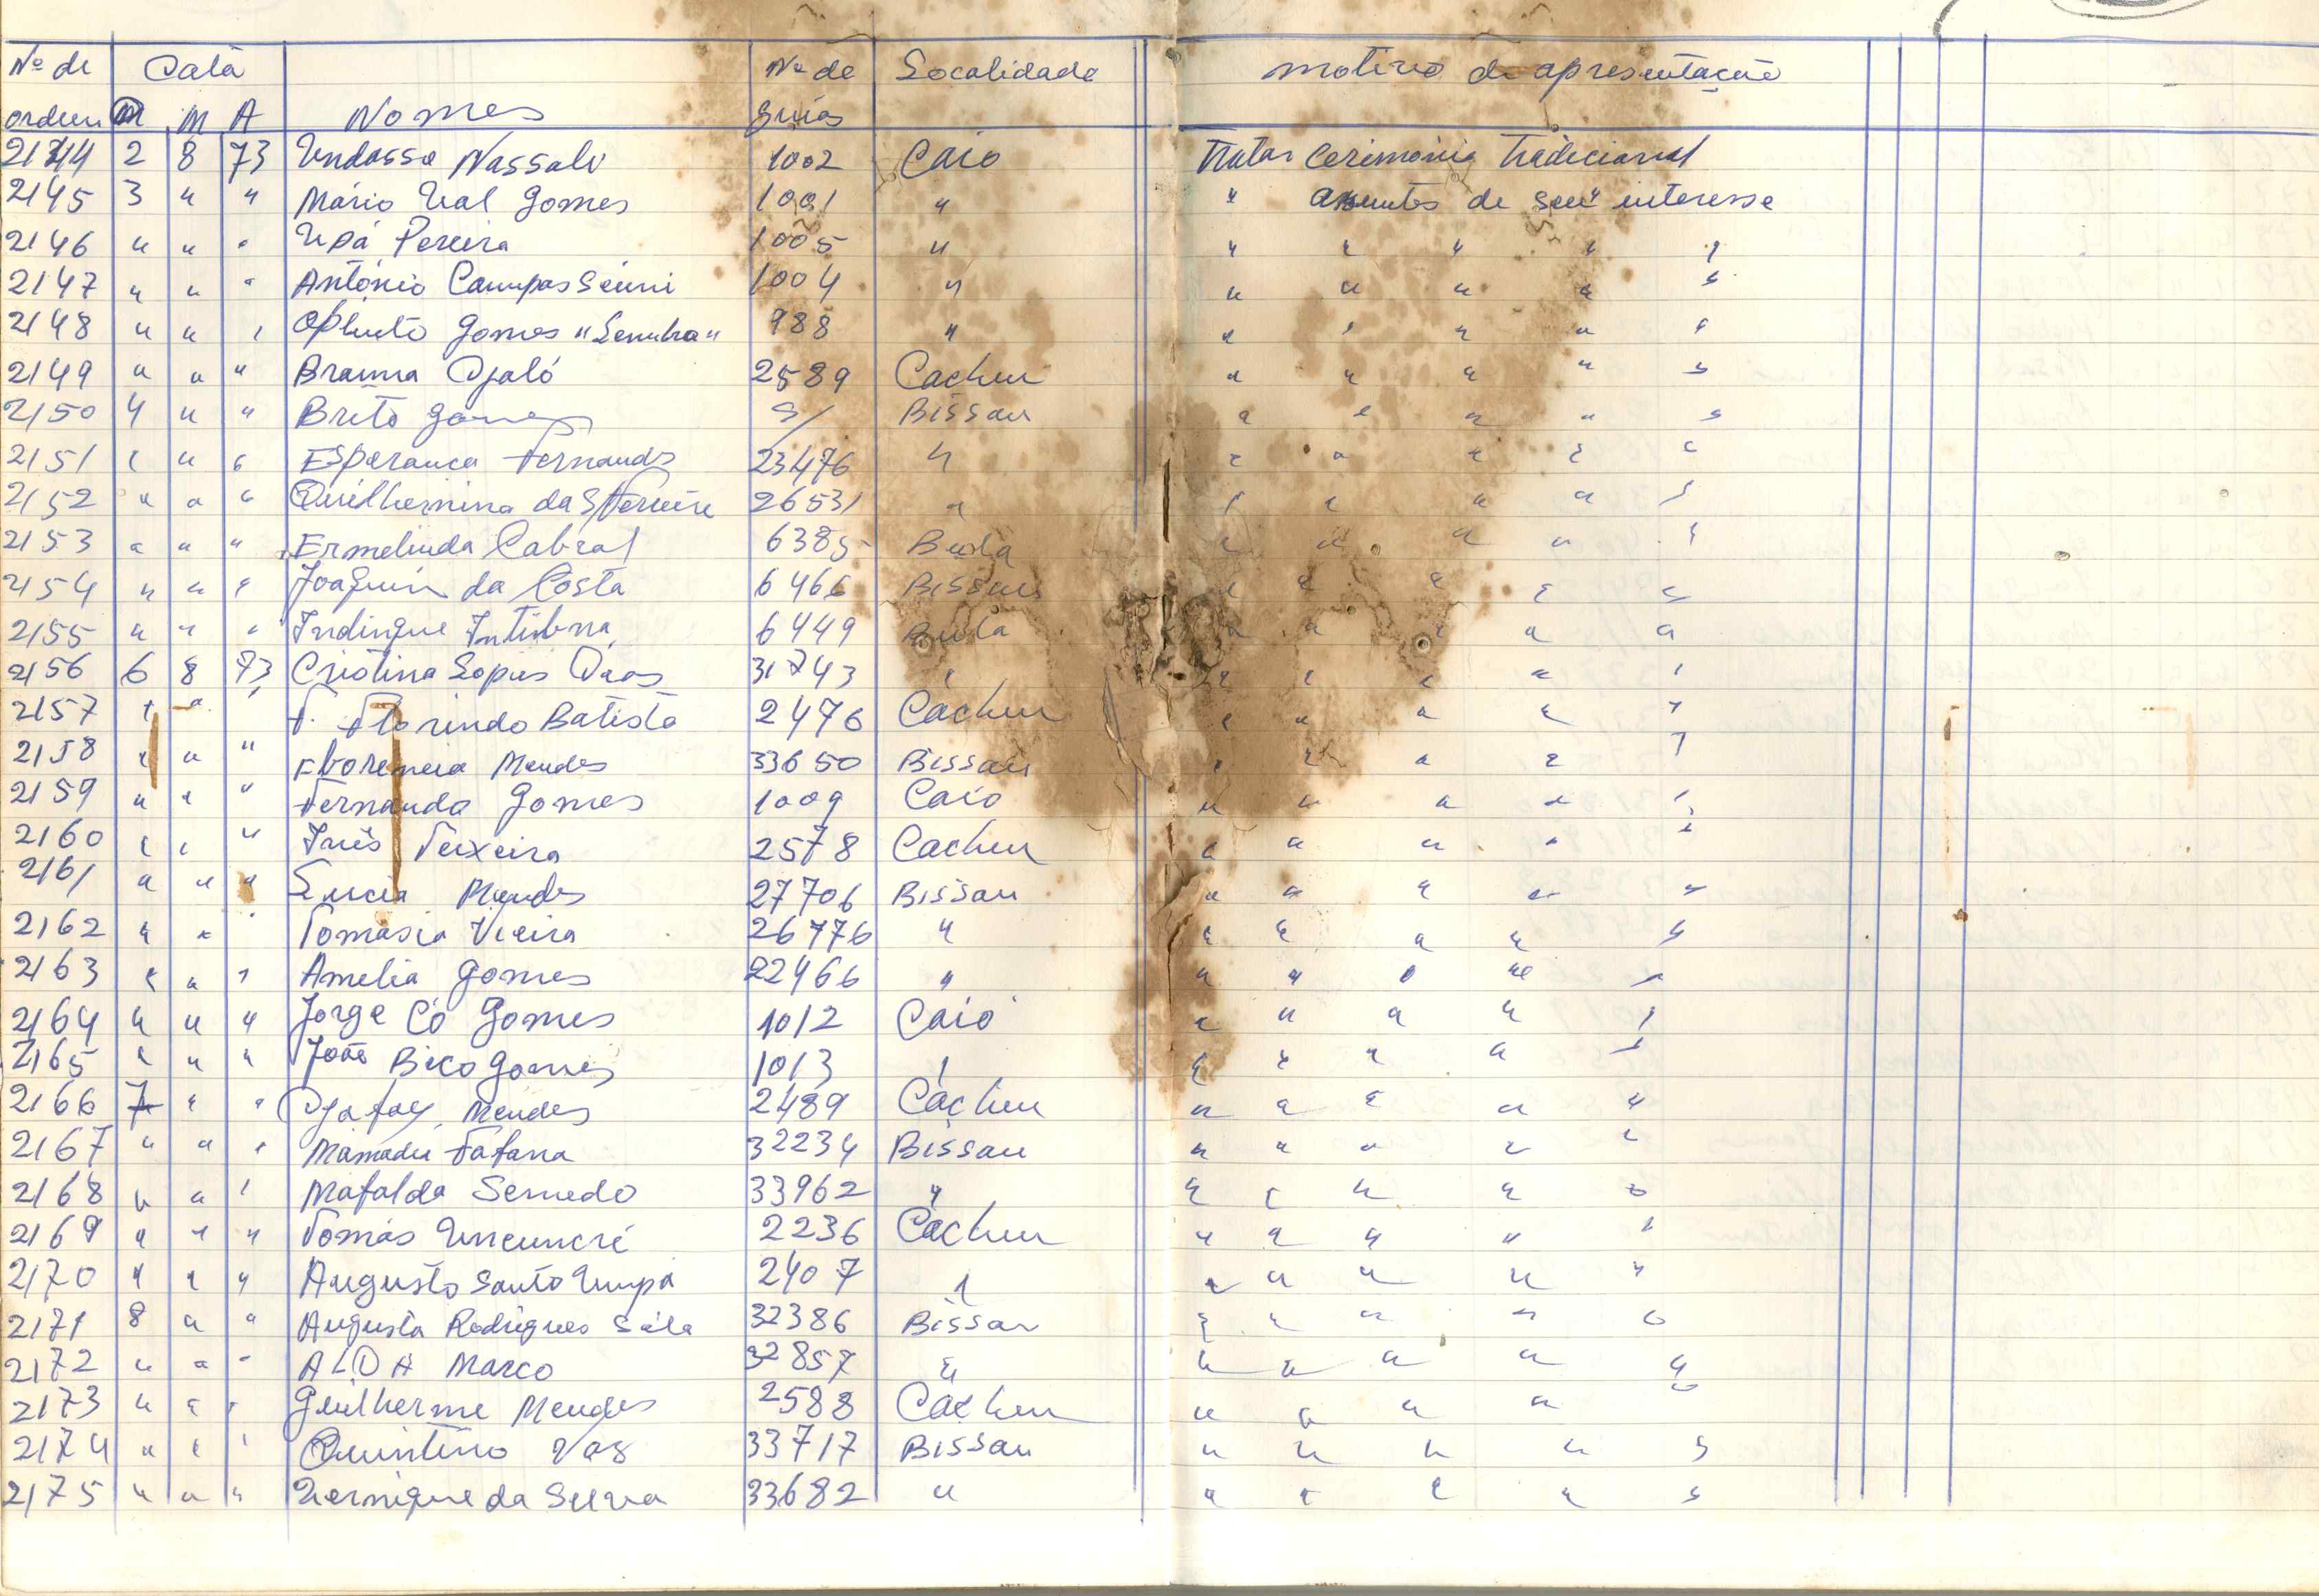 Nº de Data Nº de Localidade motivo de apresentação
ordem M A Nomes guias
2144 2 8 73 Undassa Nassalu 1002 Caió Tratar Cerimónia Tradicional
2145 3 " " Mário Ual Gomes 1001 " " assuntos de seu interesse
2146 " " " Upá Pereira 1005 " " " " " "
2147 " " " António Campos 1004 " " " " " "
2148 " " " Gomes " " 988 " " " " " "
2149 " " " Braima Djaló 2589 Cacheu " " " " "
2150 4 " " Brito Gomes S/ Bissau " " " " "
2151 " " " Esperança Fernands 23476 " " " " " "
2152 " " " Quilhermina da S 26531 " " " " " "
2153 " " " Ermelinda Cabral 6385 Bula " " " " "
2154 " " " Joaquim da Costa 6466 Bissau " " " " "
2155 " " " Indingue 6449 Bula " " " " "
2156 6 8 73 Cristina Lopes 31743 " " " " " "
2157 " " " F. Florindo Batista 2476 Cacheu " " " " "
2158 " " " Florencia Mendes 33650 Bissau " " " " "
2159 " " " Fernando Gomes 1009 Caió " " " " "
2160 " " " Inês Teixeira 2578 Cacheu " " " " "
2161 " " " Lucia Mendes 27706 Bissau " " " " "
2162 " " " Tomásia Vieira 26776 " " " " " "
2163 " " " Amelia Gomes 22466 " " " " " "
2164 " " " Jorge Có Gomes 1012 Caió " " " " "
2165 " " " João Bico Gomes 1013 " " " " " "
2166 7 " " Mendes 2489 Cacheu " " " " "
2167 " " " Mamadu Fafana 32234 Bissau " " " " "
2168 " " " Mafalda Semedo 33962 " " " " " "
2169 " " " Tomás Uncuncré 2236 Cacheu " " " " "
2170 " " " Augusto Santo Umpá 2407 " " " " " "
2171 8 " " Augusta Rodrigues 32386 Bissau " " " " "
2172 " " " ALDA Marco 32857 " " " " " "
2173 " " " Guilherme Mendes 2588 Cacheu " " " "
2174 " " " Quintino Vaz 33717 Bissau " " " " "
2175 " " " da Silva 33682 " " " " " "